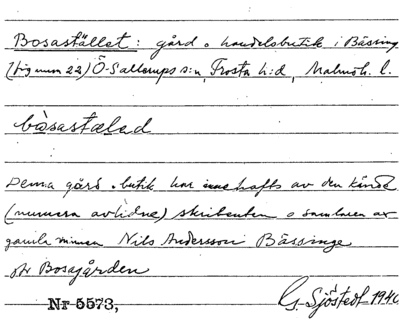 Bosastället: gård o handelsbutik i Bässinge
(fig num 22) Ö-Sallerups s:n, Frosta h:d, Malmöh. l.
bòsastæləd
Denna gård o butik har innehafts av den kände
(numera avlidne) skribenten o samlaren av
gamla minnen Nils Andersson Bässinge
Bosagården
Nr 5573,
G. Sjöstedt 1940